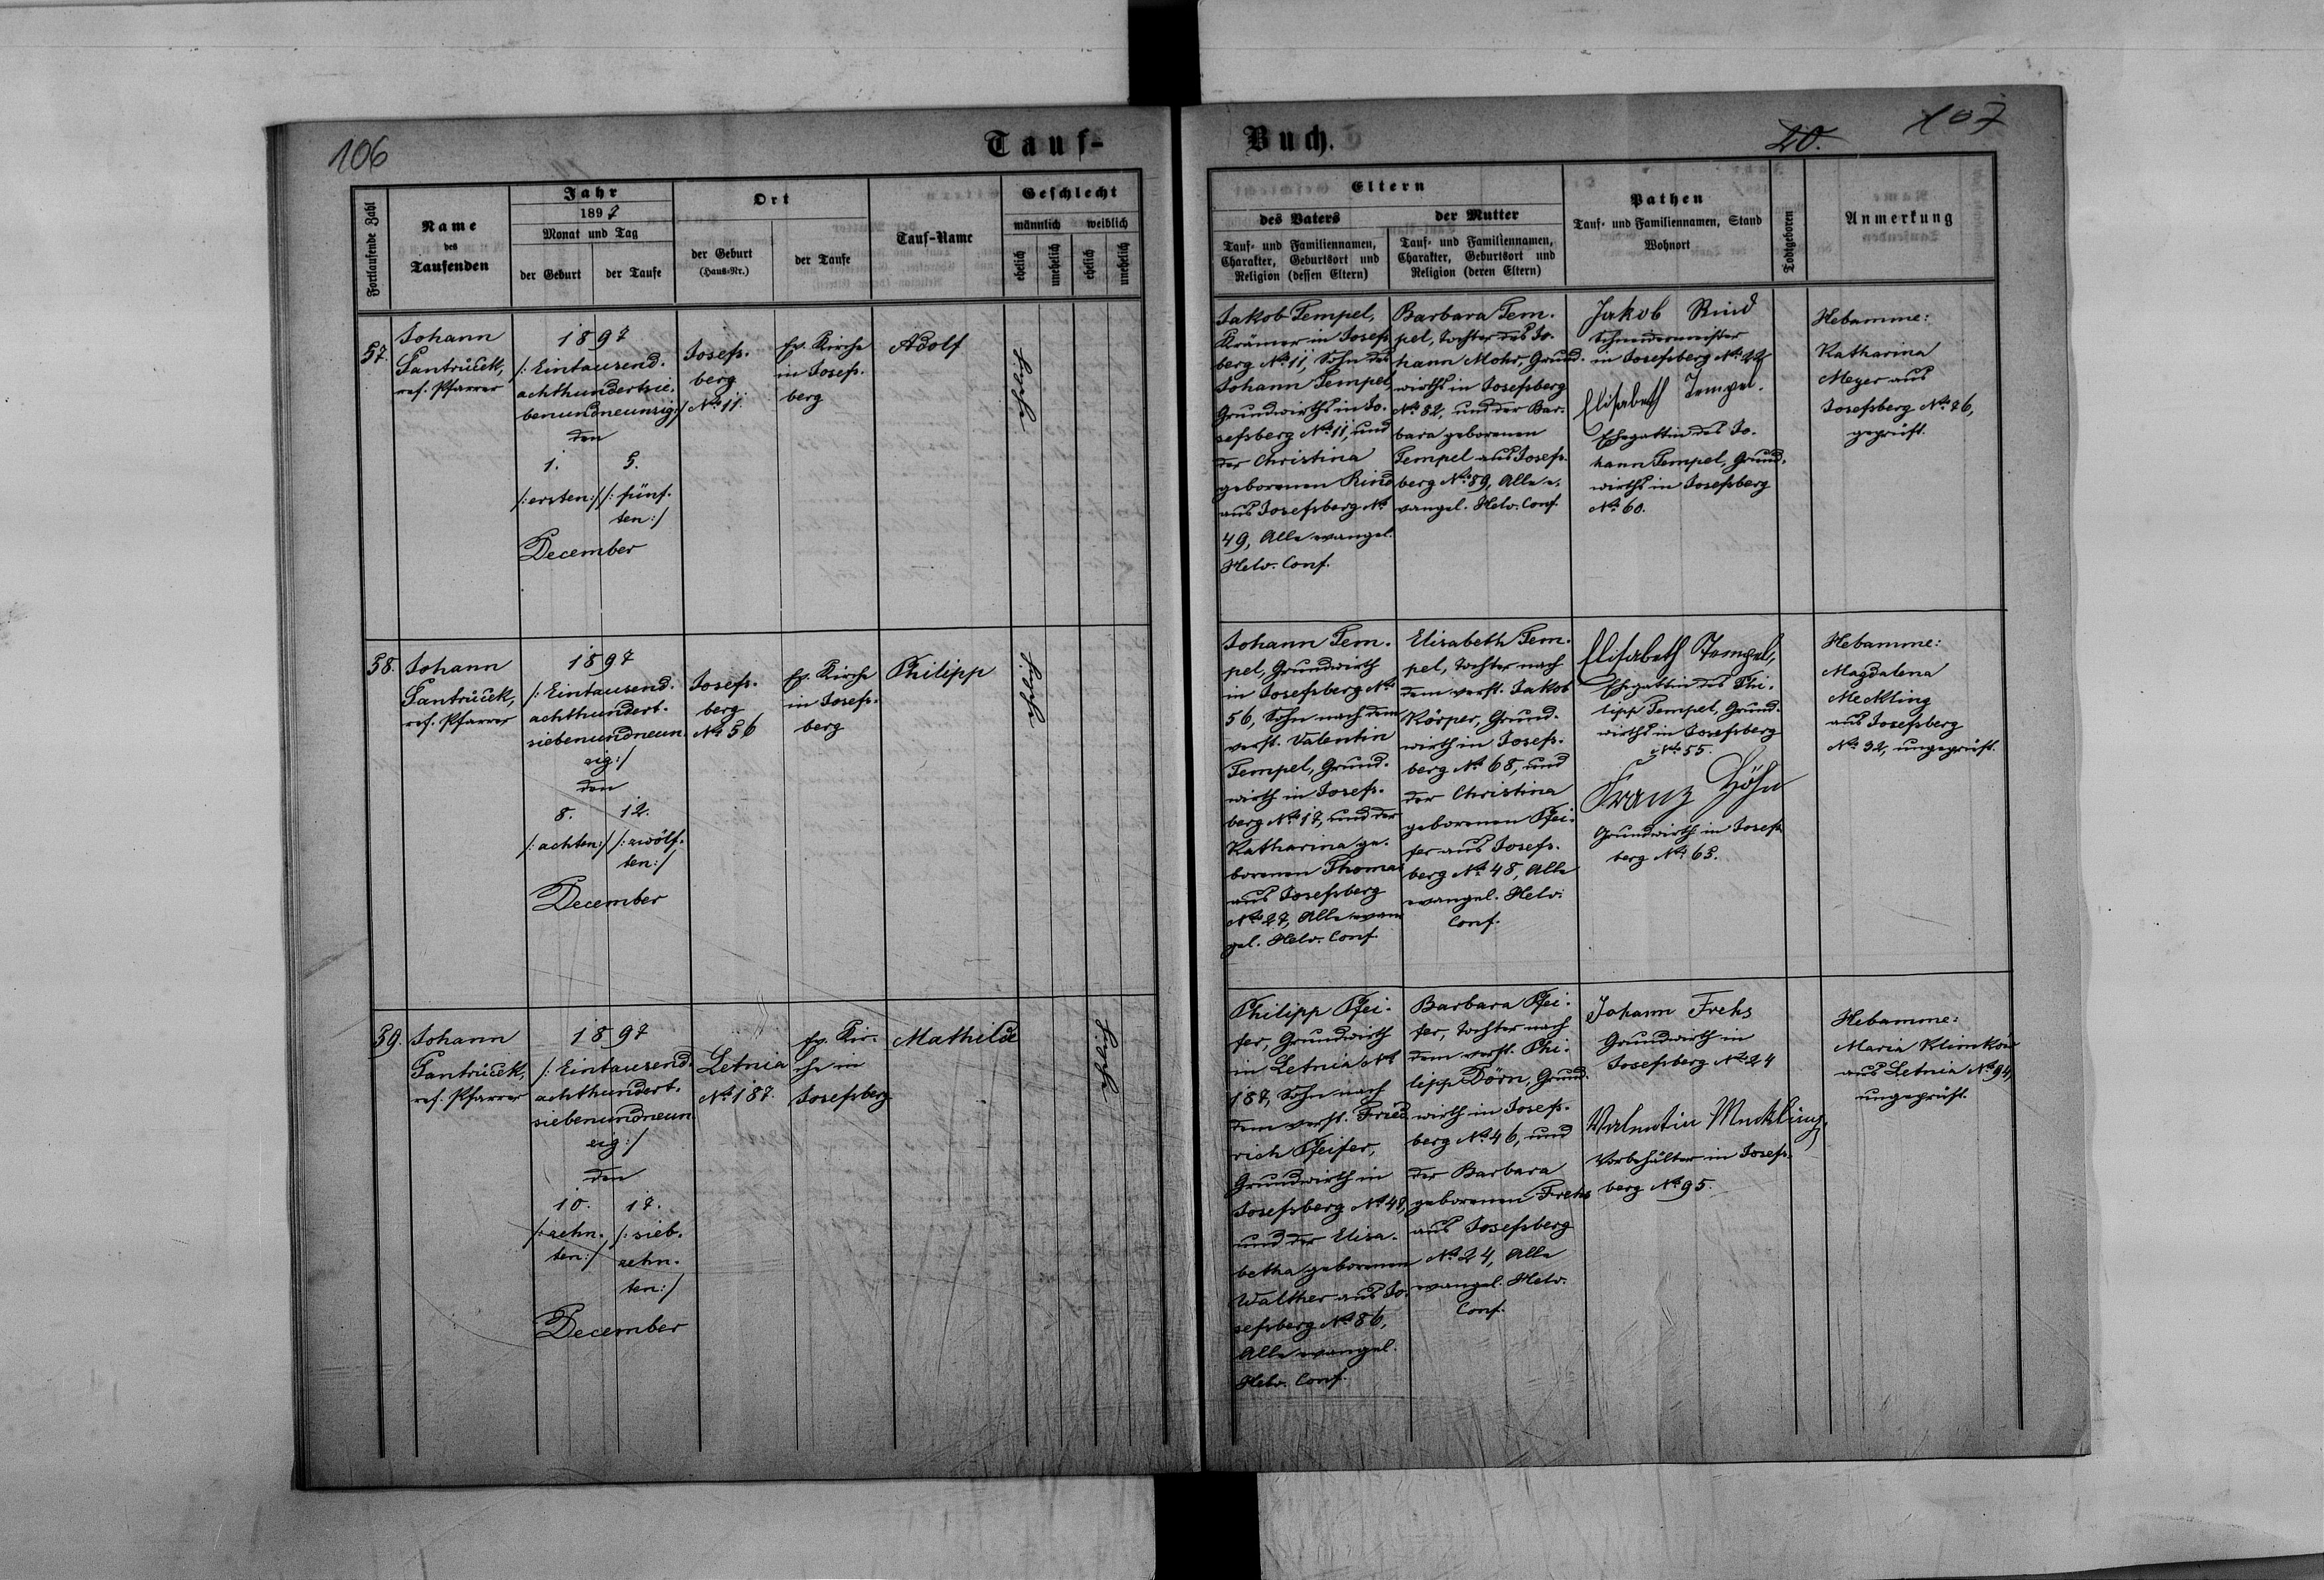 106
Tauf-
Buch.
20.
107
Fortlaufende Zahl
Name
des
Taufenden
Jahr
1897
Monat und Tag
der Geburt
der Taufe
Ort
der Geburt
(Haus-Nr.)
der Taufe
Tauf-Name
Geschlecht
männlich
weiblich
ehelich
unehelich
ehelich
unehelich
Eltern
des Vaters
Tauf- und Familiennamen,
Charakter, Geburtsort und
Religion (dessen Eltern)
der Mutter
Tauf- und Familiennamen,
Charakter, Geburtsort und
Religion (deren Eltern)
Pathen
Tauf- und Familiennamen, Stand
Wohnort
Todtgeboren
Anmerkung
57.
Johann
Jantrůček,
ref. Pfarrer
1897
/: Eintausend-
achthundertsie-
benundneunzig :/
den
1.
5.
/: ersten :/
/: fünf-
ten :/
December
Josefs-
berg
No 11.
Ev. Kirche
in Josefs-
berg
Adolf
ehelich
Jakob Tempel,
Krämer in Josefs-
berg No 11, Sohn des
Johann Tempel
Grundwirths in Jo-
sefsberg No 11, und
der Christina
geborenen Rind
aus Josefsberg No
49, Alle evangel.
Helv. Conf.
Barbara Tem-
pel, Tochter des Jo-
hann Mohr, Grund-
wirths in Josefsberg
No 82, und der Bar-
bara geborenen
Tempel aus Josefs-
berg No 89, Alle e-
vangel. Helv. Conf.
Jakob Rind
Schneidermeister
in Josefsberg No 22
Elisabeth Tempel.
Ehegattin des Jo-
hann Tempel, Grund-
wirths in Josefsberg
No 60.
Hebamme:
Katharina
Meyer aus
Josefsberg No 76,
geprüft.
58.
Johann
Jantrůček,
ref. Pfarrer
1897
/: Eintausend-
achthundert-
siebenundneun-
zig :/
den
8.
12.
/: achten :/
/: zwölf-
ten :/
December
Josefs-
berg
No 56
Ev. Kirche
in Josefs-
berg
Philipp
ehelich
Johann Tem-
pel, Grundwirth
in Josefsberg No
56, Sohn nach dem
verst. Valentin
Tempel, Grund-
wirth in Josefs-
berg No 17, und der
Katharina ge-
borenen Thomas
aus Josefsberg
No 27, Alle evan-
gel. Helv. Conf.
Elisabeth Tem-
pel, Tochter nach
dem verst. Jakob
Körper, Grund-
wirth in Josefs-
berg No 68, und
der Christina
geborenen Pfei-
fer aus Josefs-
berg No 48, Alle
evangel. Helv.
Conf.
Elisabeth Tempel,
Ehegattin des Phi-
lipp Tempel, Grund-
wirths in Josefsberg
No 55.
Franz Höhn
Grundwirth in Josefs-
berg No 63.
Hebamme:
Magdalena
Meckling
aus Josefsberg
No 32, ungeprüft.
59.
Johann
Jantrůček,
ref. Pfarrer
1897
/: Eintausend-
achthundert-
siebenundneun-
zig :/
den
10.
17.
/: zehn-
ten :/
/: sieb-
zehn-
ten :/
December
Letnia
No 187.
Ev. Kir-
che in
Josefsberg
Mathilde
ehelich
Philipp Pfei-
fer, Grundwirth
in Letnia No
187, Sohn nach
dem verst. Fried-
rich Pfeifer,
Grundwirth in
Josefsberg No 48,
und der Elisa-
betha geborenen
Walther aus Jo-
sefsberg No 86,
Alle evangel.
Helv. Conf.
Barbara Pfei-
fer, Tochter nach
dem verst. Phi-
lipp Dörn, Grund-
wirth in Josefs-
berg No 46, und
der Barbara
geborenen Frehs
aus Josefsberg
No 24, Alle
evangel. Helv.
Conf.
Johann Frehs
Grundwirth in
Josefsberg No 24
Valentin Meckling,
Vorbehälter in Josefs-
berg No 95.
Hebamme:
Maria
aus Letnia No 94,
ungeprüft.